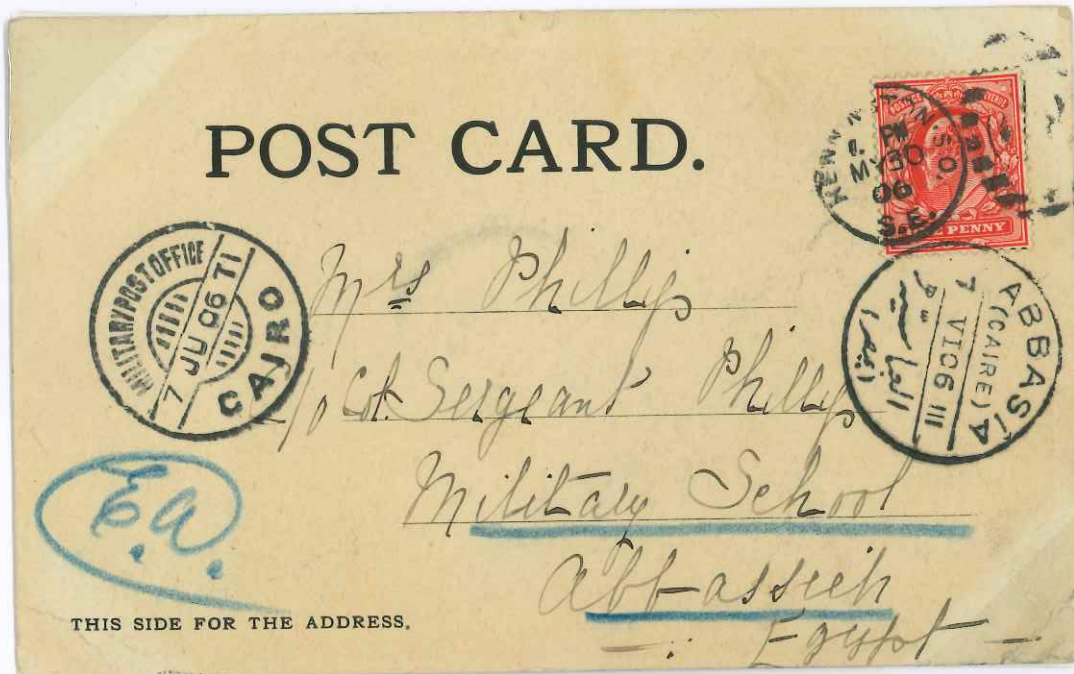 POST CARD.
KENNINGTON S.O.
PM
MY 30
06
S.E.
POSTAGE & REVENUE
ONE PENNY
MILITARY POST OFFICE
7 JU 06 T1
CAIRO
ABBASIA
(CAIRE)
7 VI 06 III
العباسية
(بمصر)
Mrs Phillips
c/o Col. Sergeant Phillips
Military School
Abbassieh
Egypt
E.A.
THIS SIDE FOR THE ADDRESS.